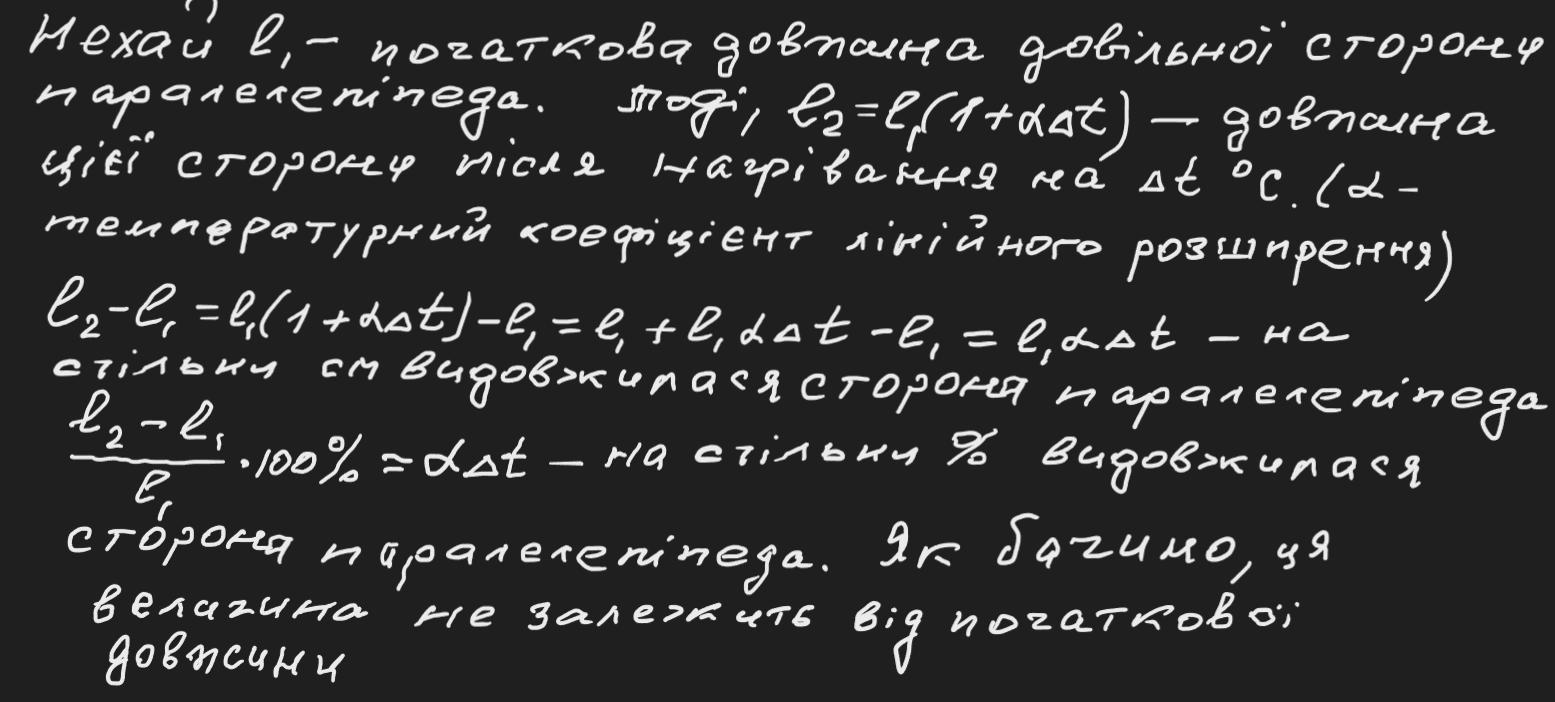 Нехай l₁ – початкова довжина довільної сторони
паралелепіпеда. Тоді, l₂=l₁(1+αΔt) — довжина
цієї сторони після нагрівання на Δt °C. (α -
температурний коефіцієнт лінійного розширення)
l₂-l₁=l₁(1+αΔt)-l₁=l₁+l₁αΔt-l₁=l₁αΔt – на
стільки см видовжилася сторона паралелепіпеда
(l₂-l₁)/l₁·100%=αΔt – на стільки % видовжилася
сторона паралелепіпеда. Як бачимо, ця
величина не залежить від початкової
довжини